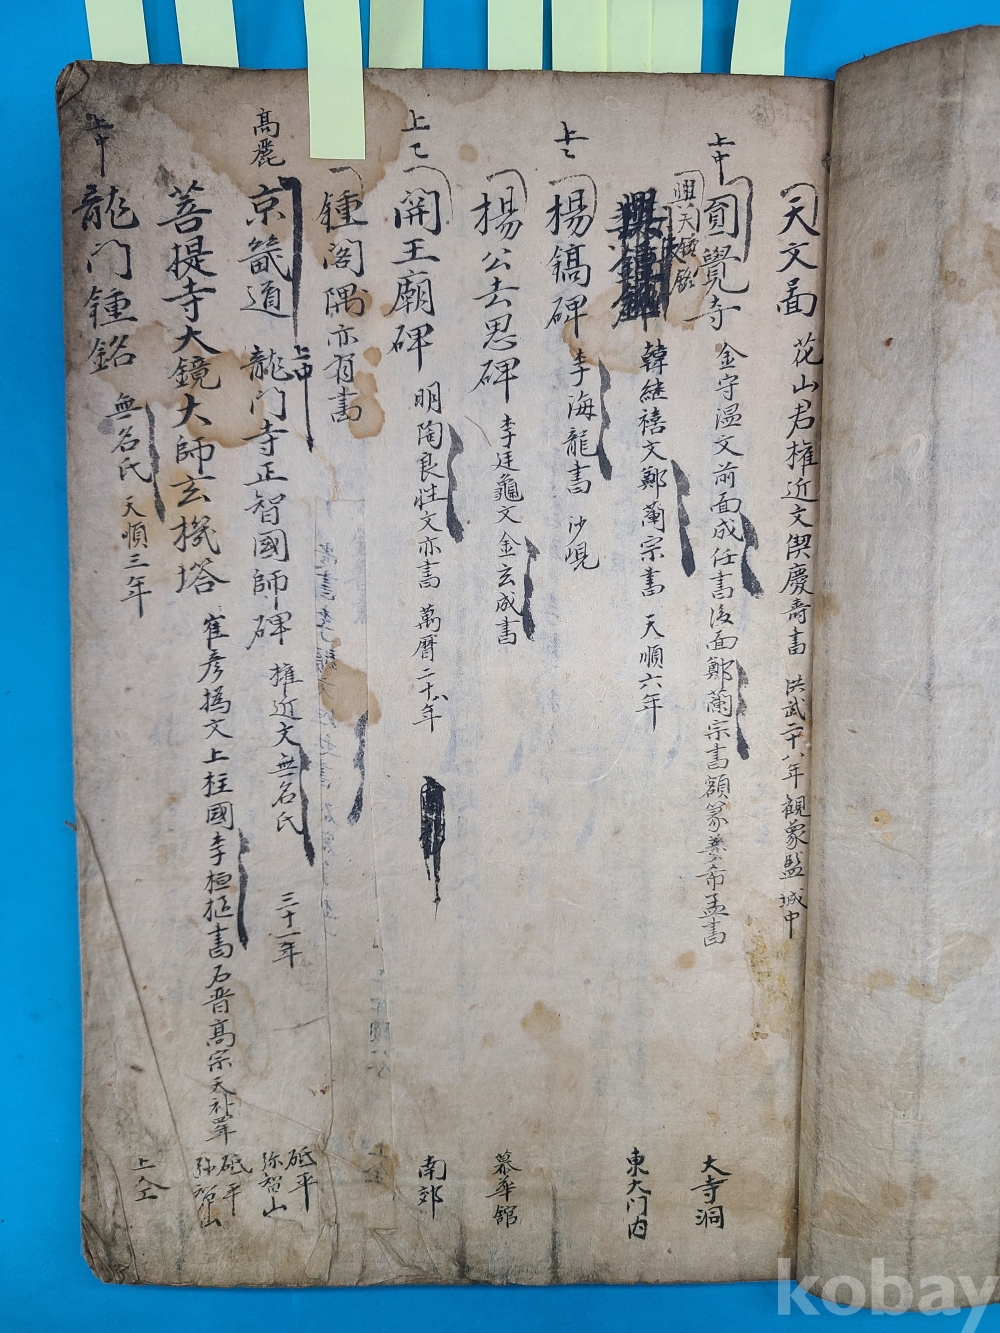 天文啚 花山君權近文偰慶壽書 洪武二十八年 觀象監 城中
上中
圎覺寺 金守溫文前面成任書後面鄭蘭宗書額篆姜希孟書 大寺洞
興天寺鍾銘 韓継禧文鄭蘭宗書 天順六年 東大門內
上之
楊鎬碑 李海龍書 沙峴
楊公去思碑 李廷龜文金玄成書 慕華館
上之
開王廟碑 明陶良性文亦書 萬曆二十八年 南郊
鍾閣隅亦有書
高麗
京畿道
上中
龍門寺正智國師碑 權近文無名氏 三十一年 砥平 弥智山
菩提寺大鏡大師玄機塔 崔彥撝文上柱國李桓樞書石晋高宗天福四年 砥平 弥智山
上中
龍门鍾銘 無名氏 天順三年 上仝
kobay